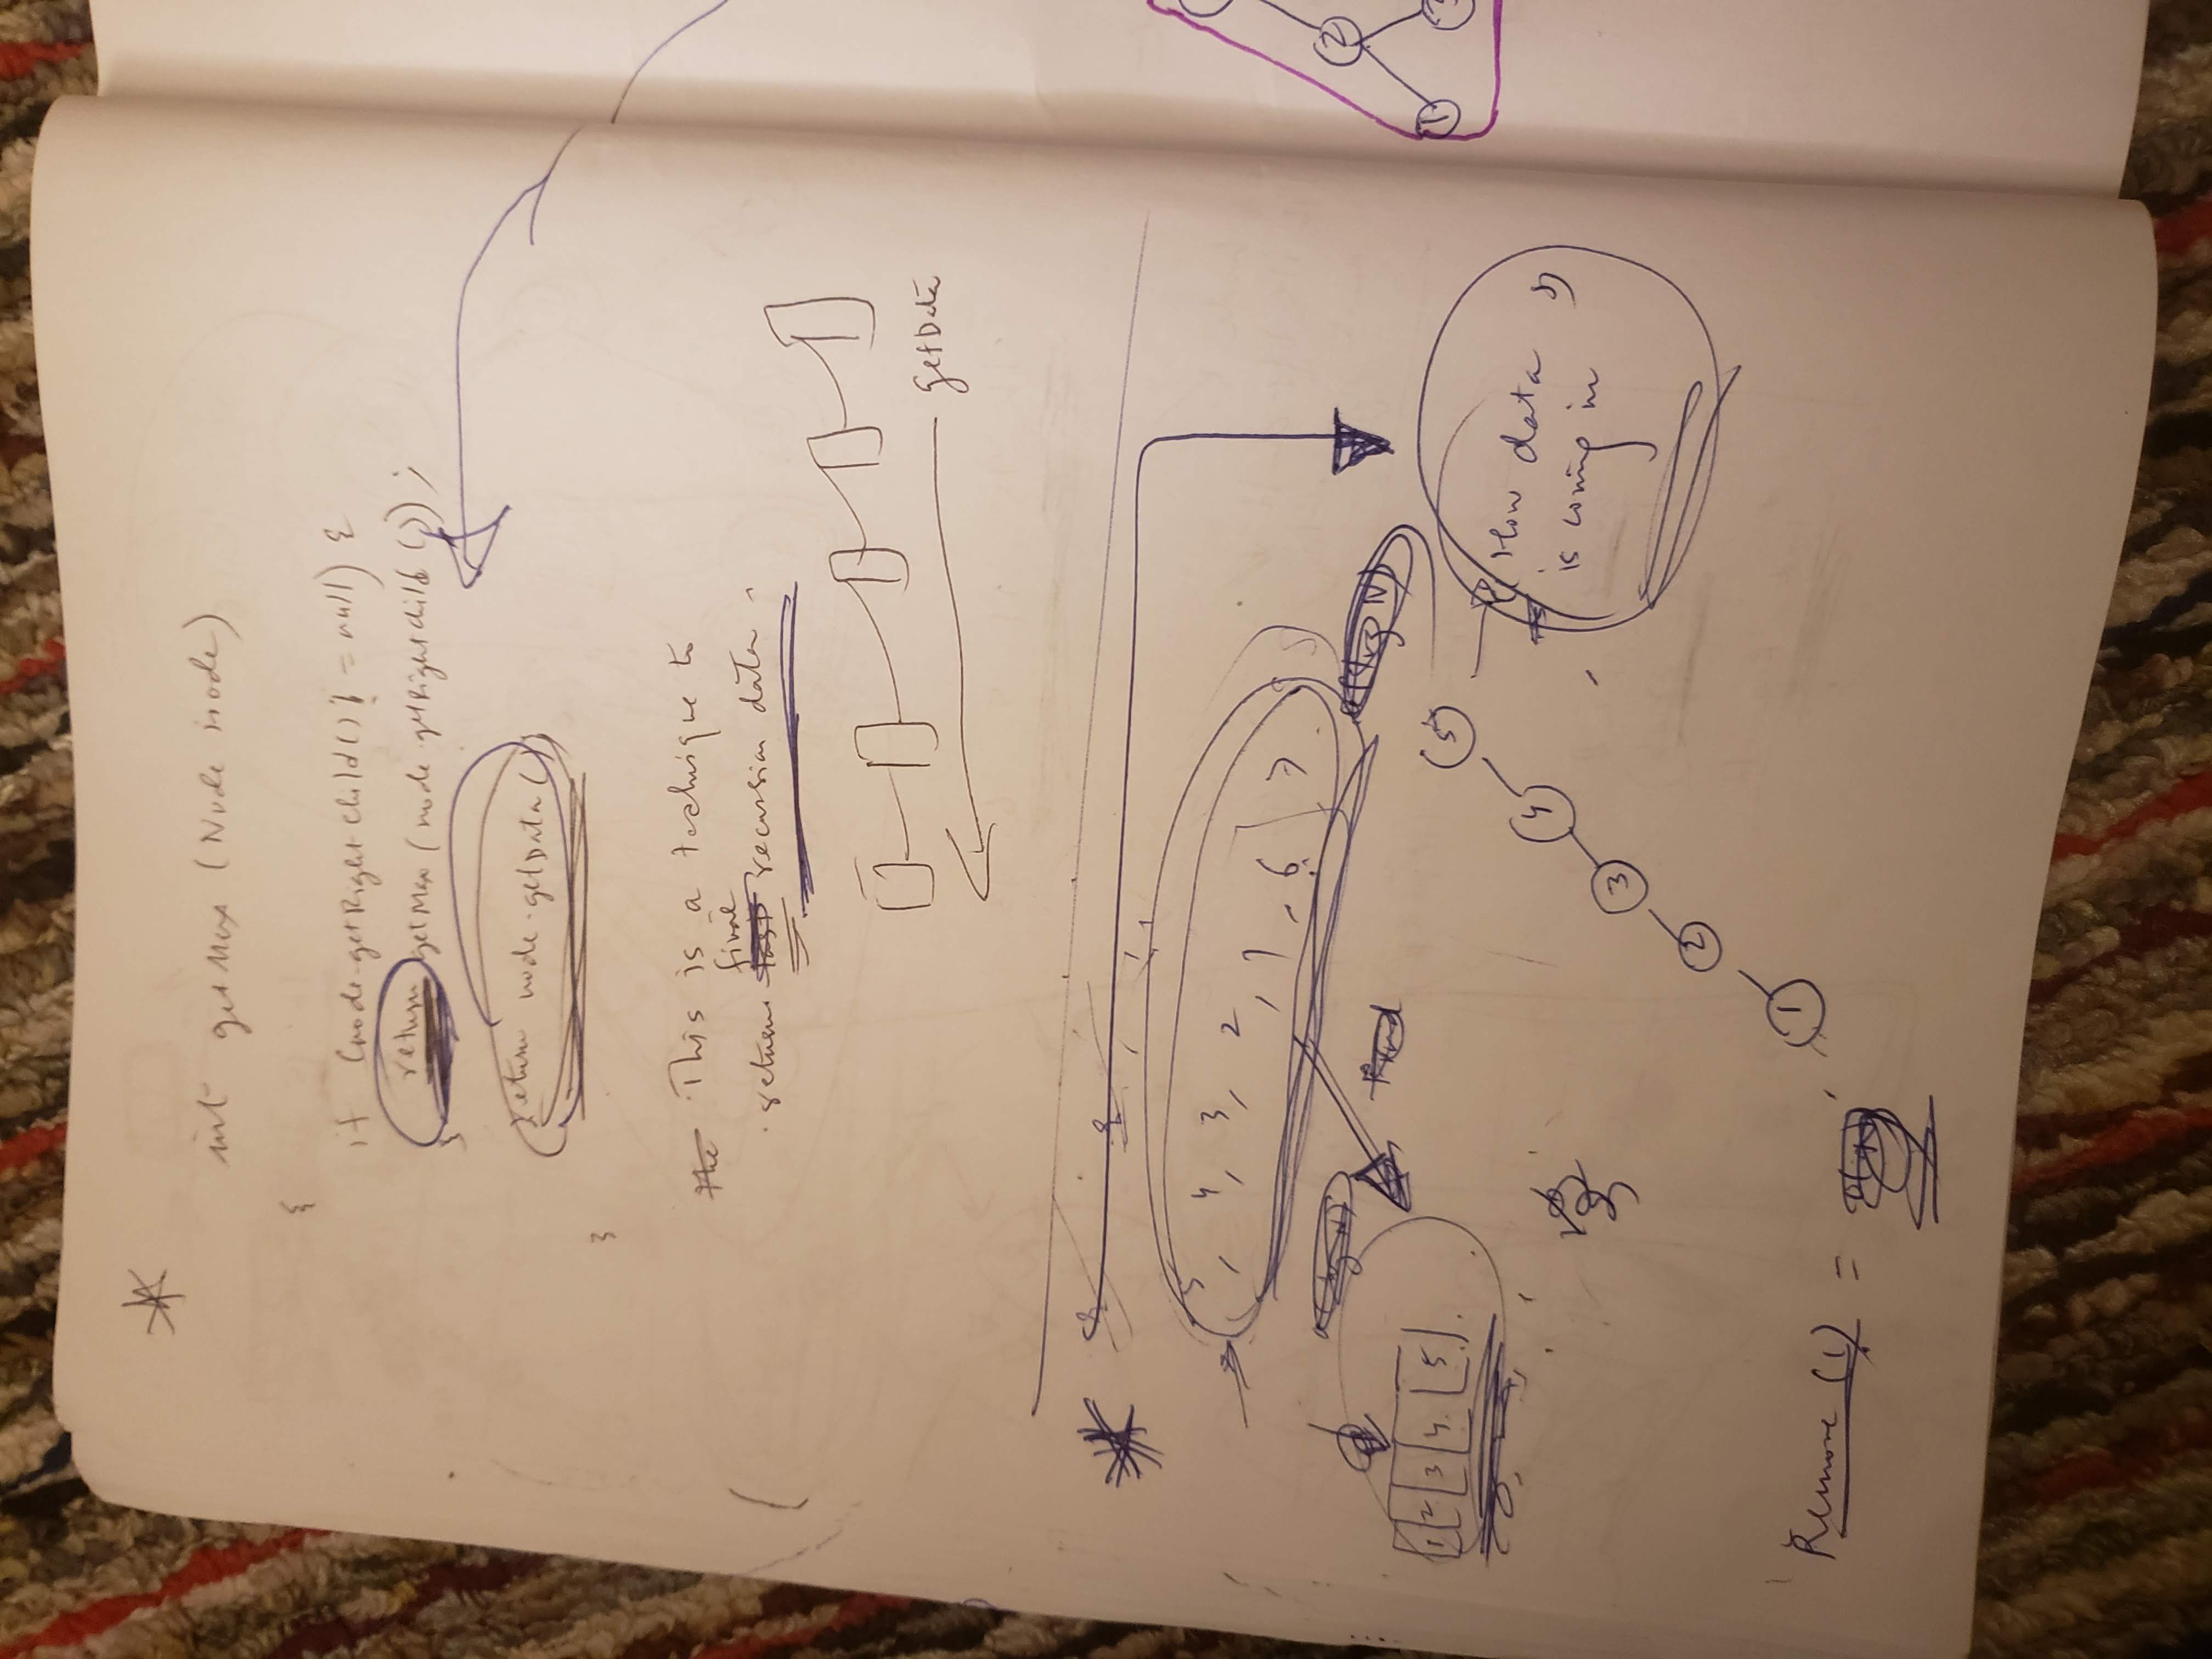 int getMax (Node node)
{
if (node.getRightChild() != null) {
return getMax (node.getRightChild ());
}
return node.getData();
}
the This is a technique to
final
return last recursion data.
getData
5, 4, 3, 2, 1, 6 7
(log N)
(log N)
1 2 3 4 5
5
4
3
2
1
How data
is coming in
Remove (1) =
2
1
3